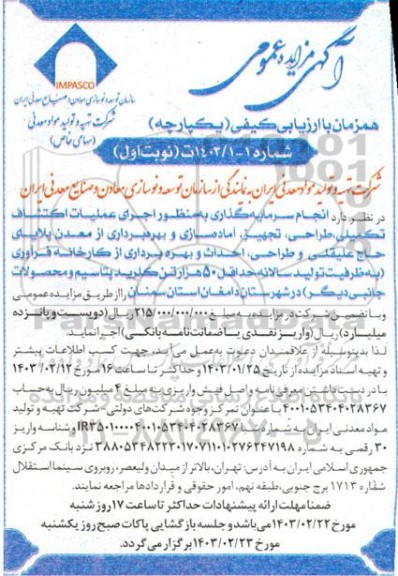 آگهی مزایده عمومی
IMPASCO
سازمان توسعه و نوسازی معادن و صنایع معدنی ایران
شرکت تهیه و تولید مواد معدنی
(سهامی خاص)
همزمان با ارزیابی کیفی (یکپارچه)
شماره ۱-۱۴۰۳/۱ت (نوبت اول)
شرکت تهیه و تولید مواد معدنی ایران به نمایندگی از سازمان توسعه و نوسازی معادن و صنایع معدنی ایران
در نظر دارد انجام سرمایه‌گذاری به منظور اجرای عملیات اکتشاف
تکمیلی، طراحی، تجهیز، آماده‌سازی و بهره‌برداری از معدن پلایای
حاج علیقلی و طراحی، احداث و بهره برداری از کارخانه فرآوری
(به ظرفیت تولید سالانه حداقل ۵۰ هزار تن کلرید پتاسیم و محصولات
جانبی دیگر) در شهرستان دامغان استان سمنان را از طریق مزایده عمومی
و با تضمین شرکت در مزایده به مبلغ ۲۱۵/۰۰۰/۰۰۰/۰۰۰ ریال (دویست و پانزده
میلیارد) ریال (واریز نقدی یا ضمانت نامه بانکی) اجرا نماید.
لذا بدینوسیله از علاقمندان دعوت به عمل می آید، جهت کسب اطلاعات بیشتر
و تهیه اسناد مزایده از تاریخ ۱۴۰۳/۰۱/۲۵ و حداکثر تا ساعت ۱۶ مورخ ۱۴۰۳/۰۲/۱۲
با در دست داشتن معرفی نامه و اصل فیش واریزی به مبلغ ۴ میلیون ریال به حساب
۴۰۰۱۰۵۳۴۰۴۰۲۸۳۶۷ با عنوان تمرکز وجوه شرکت‌های دولتی - شرکت تهیه و تولید
مواد معدنی ایران به شماره شبا IR۳۵۰۱۰۰۰۰۴۰۰۱۰۵۳۴۰۴۰۲۸۳۶۷ و شناسه واریز
۳۰ رقمی به شماره ۳۸۸۰۵۳۴۸۲۲۳۰۱۷۰۷۱۱۰۱۰۲۷۶۲۴۷۱۹۸ نزد بانک مرکزی
جمهوری اسلامی ایران به آدرس: تهران، بالاتر از میدان ولیعصر، روبروی سینما استقلال
شماره ۱۷۱۳ برج جنوبی، طبقه نهم، امور حقوقی و قراردادها مراجعه نمایند.
ضمنا مهلت ارائه پیشنهادات حداکثر تا ساعت ۱۷ روز شنبه
مورخ ۱۴۰۳/۰۲/۲۲ می باشد و جلسه بازگشایی پاکات صبح روز یکشنبه
مورخ ۱۴۰۳/۰۲/۲۳ برگزار می گردد.